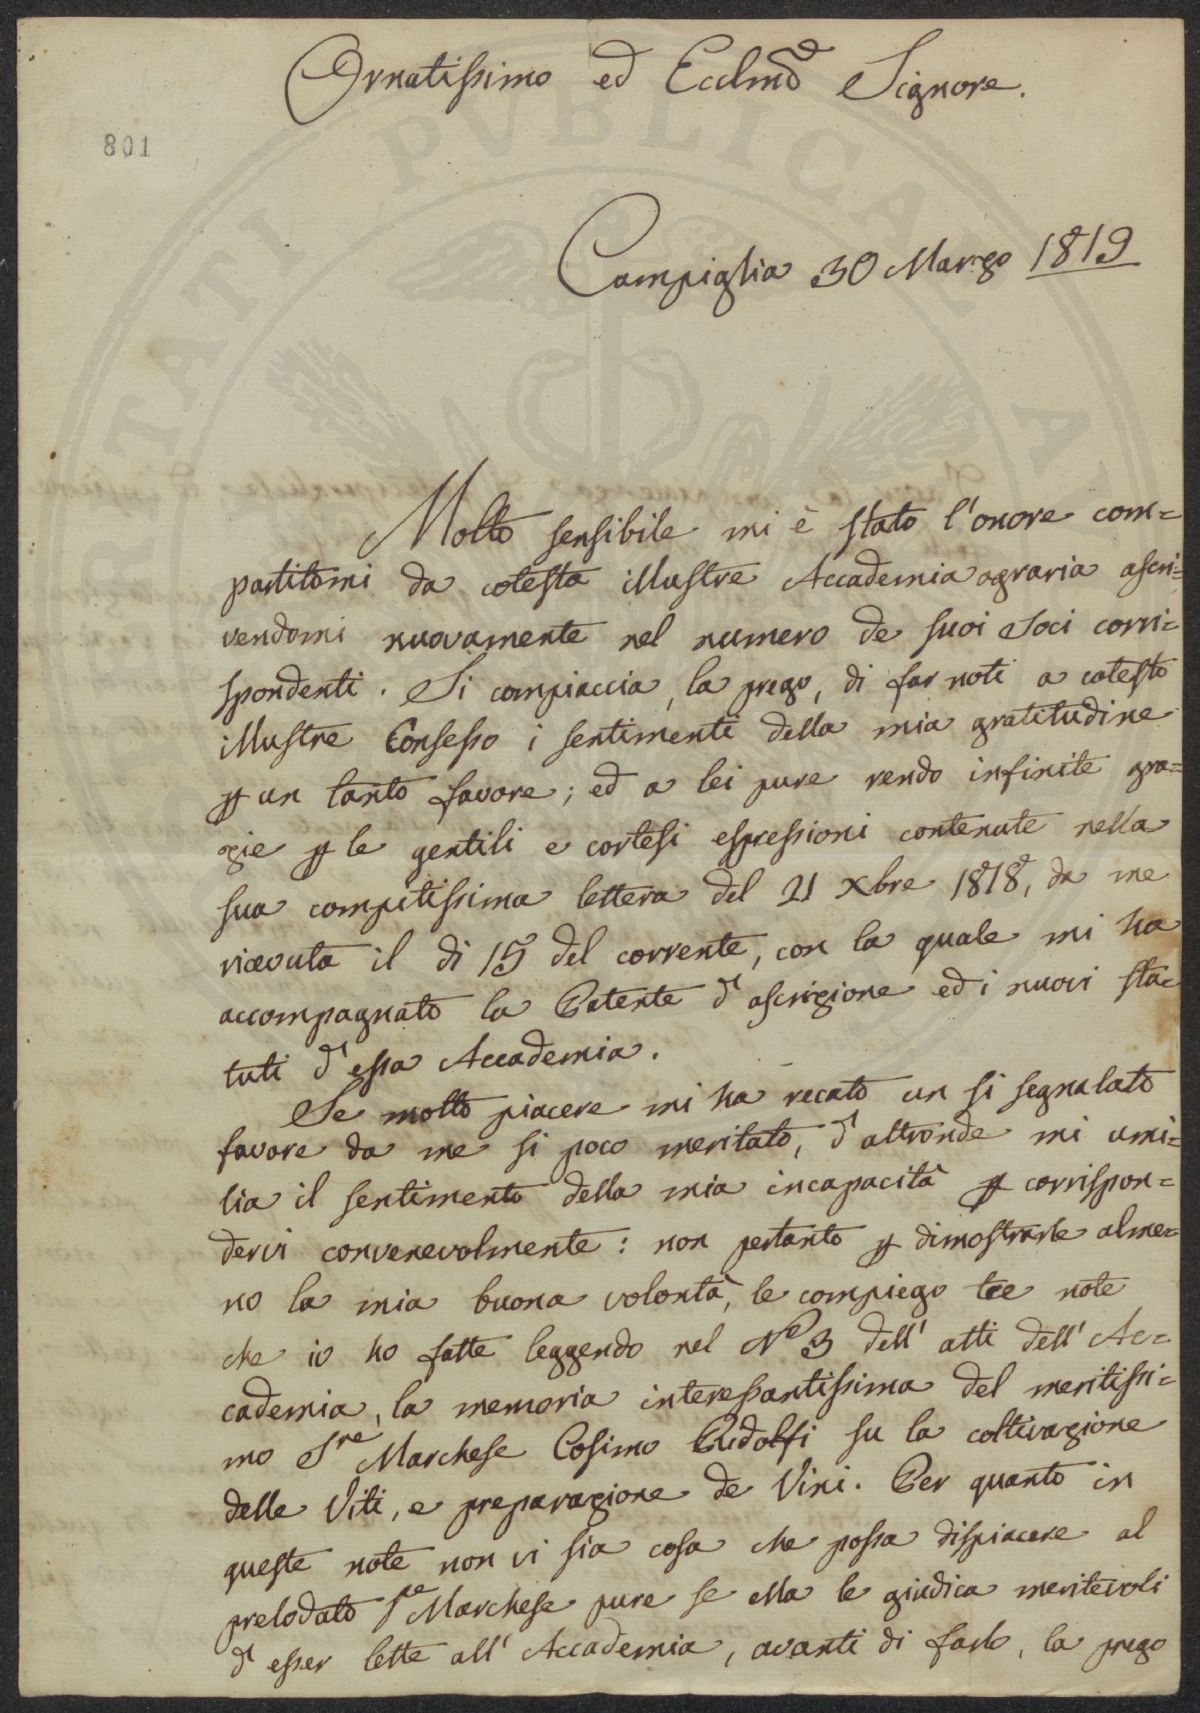 Ornatissimo ed Ecclmo Signore.
801
Campiglia 30 Marzo 1819
Molto sensibile mi è stato l'onore com=
partitomi da cotesta illustre Accademia agraria ascri=
vendomi nuovamente nel numero de suoi Soci corri=
spondenti. Si compiaccia, la prego, di far noti a cotesto
illustre Consesso i sentimenti della mia gratitudine
p un tanto favore; ed a lei pure rendo infinite gra=
zie p le gentili e cortesi espressioni contenute nella
sua compitissima lettera del 21 Xbre 1818, da me
ricevuta il dì 15 del corrente, con la quale mi ha
accompagnato la Patente d'ascrizione ed i nuovi sta=
tuti d'essa Accademia.
Se molto piacere mi ha recato un si segnalato
favore da me si poco meritato, d'altronde mi umi=
lia il sentimento della mia incapacità p corrispon=
dervi convenevolmente: non pertanto p dimostrarle alme=
no la mia buona volontà, le compiego tre note
che io ho fatte leggendo nel No 3 dell'atti dell'Ac=
cademia, la memoria interessantissima del meritissi=
mo Sre Marchese Cosimo Ridolfi su la coltivazione
delle Viti, e preparazione de Vini. Per quanto in
queste note non vi sia cosa che possa dispiacere al
prelodato Sre Marchese pure se ella le giudica meritevoli
d'esser lette all'Accademia, avanti di farlo, la prego
PVBLICAE